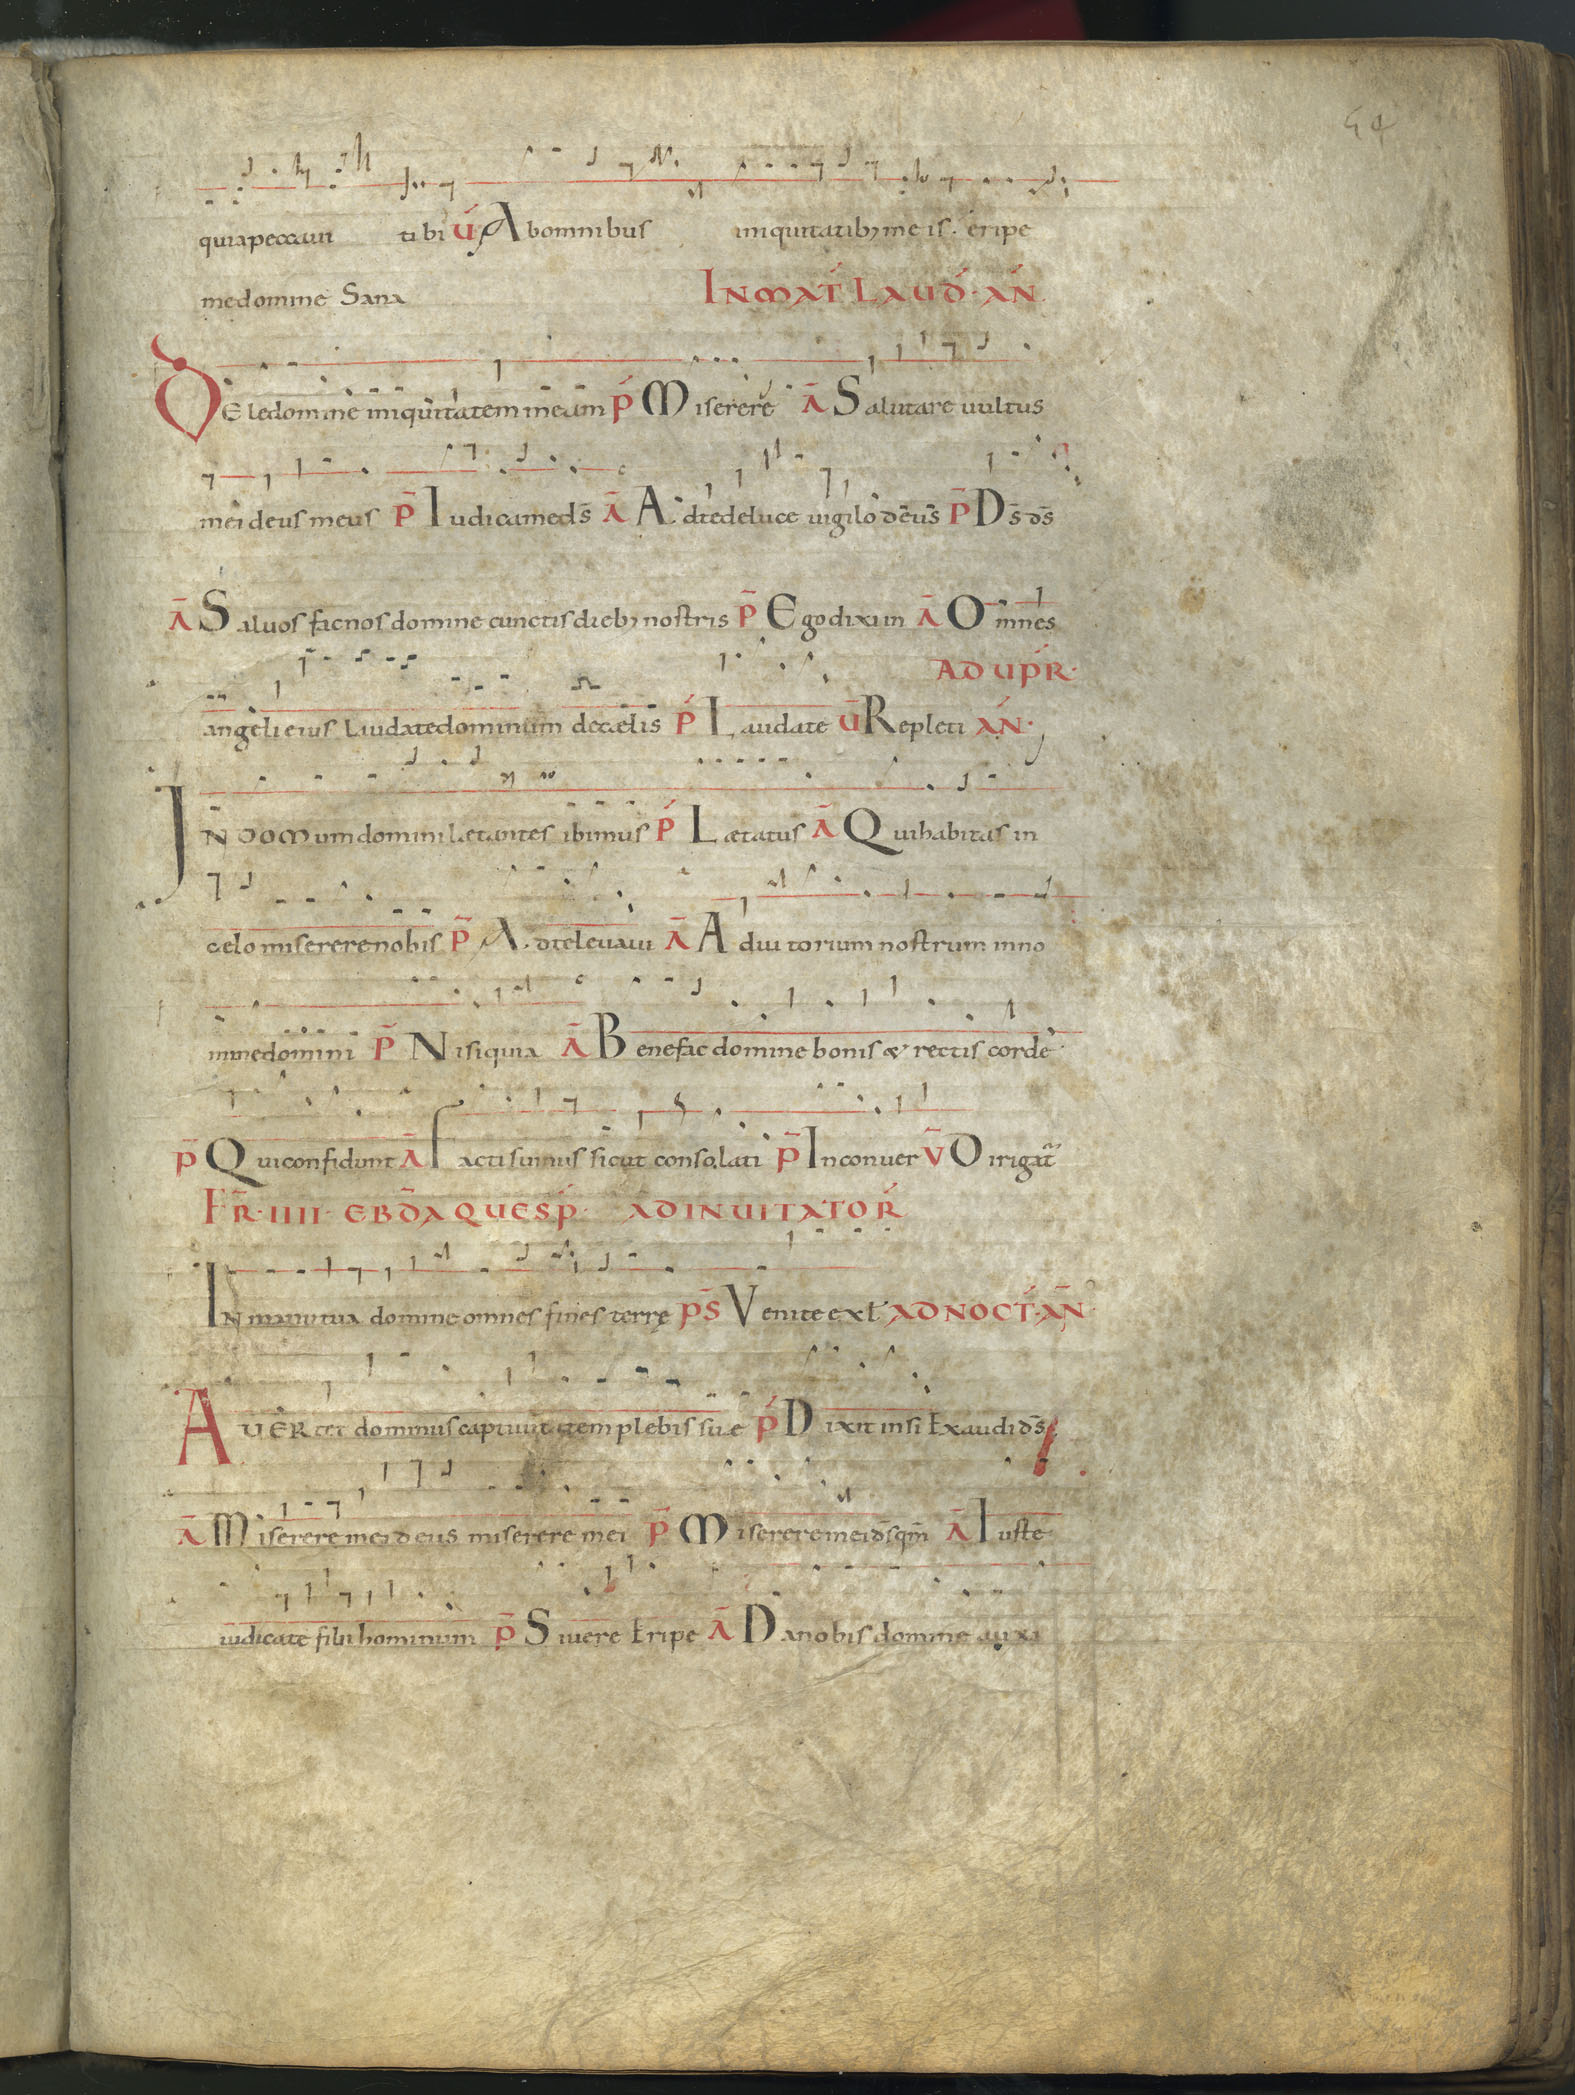 54
quia peccavi tibi v̄ Ab omnibus iniquitatib; meis. eripe
me domine Sana IN MAT́ LAUD́. AŃ.
DEle domine iniquitatem meam ṕ Miserere Ā Salutare uultus
mei deus meus p̄ Iudica me ds̄ Ā Ad te de luce uigilo deus p̄ Ds̄ ds̄
Ā Saluos fac nos domine cunctis dieb; nostris p̄ Ego dixi in Ā Omnes
AD UṔR.
angeli eius Laudate dominum de caelis ṕ Laudate v̄ Repleti AŃ.
IN DOMum domini laetantes ibimus ṕ Laetatus Ā Qui habitas in
caelo miserere nobis p̄ Ad te leuaui Ā Adiutorium nostrum in no
mine domini p̄ Nisi quia Ā Benefac domine bonis & rectis corde
p̄ Qui confidunt Ā Facti sumus sicut consolati p̄ In conuer v̄ Dirigat̄
FR̄. IIII. EBD̄A QUESṔ. AD INUITATOŔ
IN manu tua domine omnes fines terrę ps̄ Venite exł AD NOCT́. AN̄
AUERtet dominus captiuitatem plebis suae ṕ Dixit insi Exaudi ds̄
Ā Miserere mei deus miserere mei p̄ Miserere mei ds̄ qm̄ Ā Iuste
iudicate filii hominum p̄ Si uere Eripe Ā Da nobis domine auxi